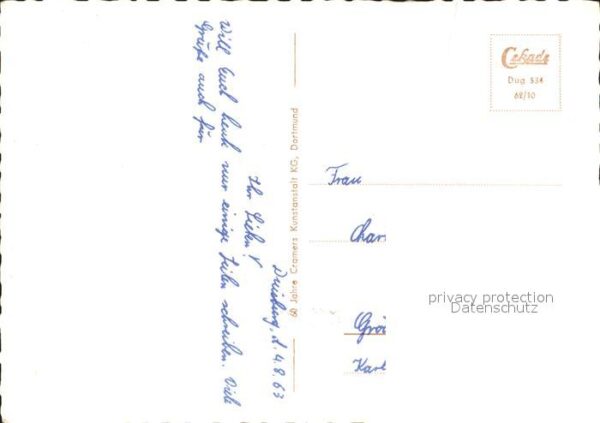 Duisburg, d. 4.8.63
Ihr Lieben!
Will Euch heute nur einige Zeilen schreiben. Viele
Grüße auch für
60 Jahre Cramers Kunstanstalt KG, Dortmund
Cekade
Dug 534
62/10
Frau
Char
Grö
Karl
privacy protection
Datenschutz